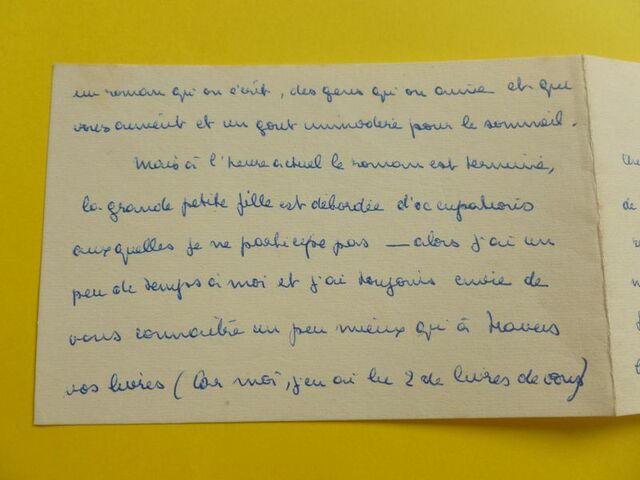 un roman qu'on écrit, des gens qu'on aime et que
vous aiment et un gout immodéré pour le sommeil.
Mais à l'heure actuel le roman est terminé,
la grande petite fille est débordée d'occupations
auxquelles je ne participe pas — alors j'ai un
peu de temps à moi et j'ai toujours envie de
vous connaître un peu mieux qu'à travers
vos livres (Car moi, j'en ai lu 2 de livres de vous)
de